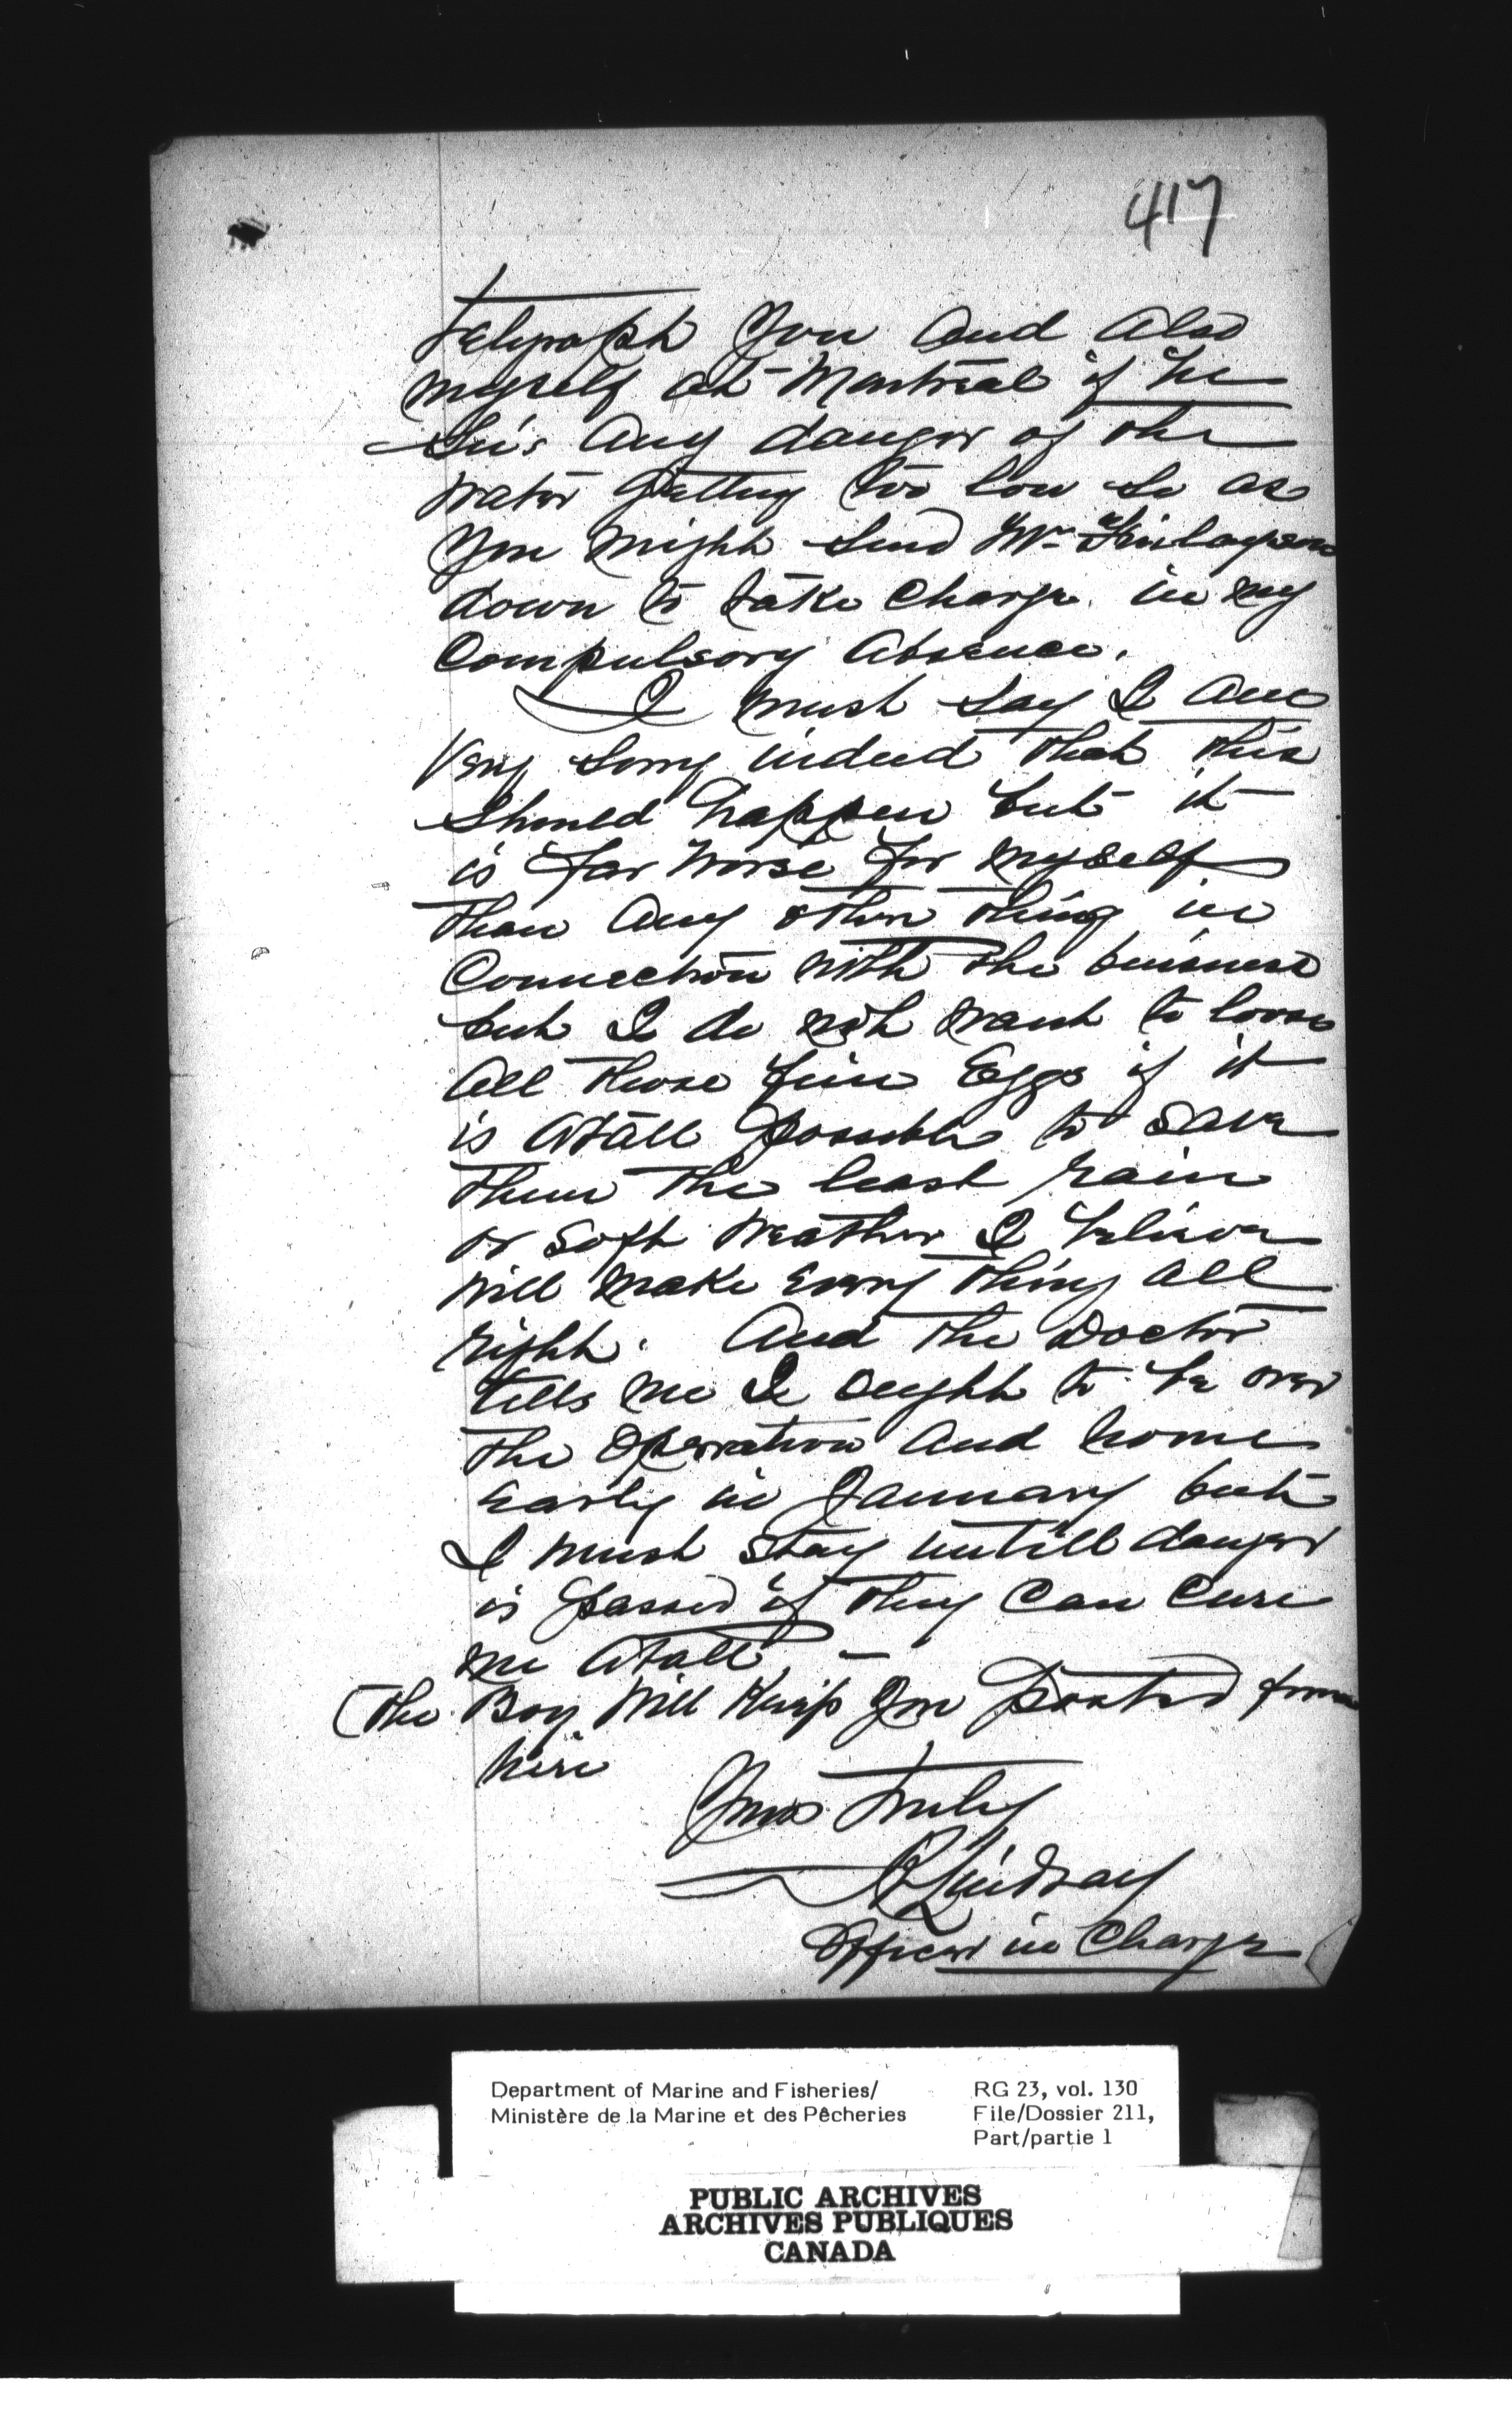 417
Telegraph You and Also
myself at Montreal if he
Sees Any danger of the
water getting too low so as
You might send Mr Finlayson
down to take Charge in my
Compulsory Absence.
I must say I am
Very sorry indeed that this
should happen but it
is far worse for myself
than Any other thing in
Connection with the business
but I do not want to loose
All those fine Eggs if it
is Atall possible to save
them the least rain
or soft weather I believe
will make every thing all
right. And the Doctor
tells me I ought to be over
the Operation and home
early in January but
I must stay untill danger
is passed if they Can Cure
me Atall —
(The Boy will Keep You posted from
here
Yours Truly
A Lindsay
Officer in Charge
Department of Marine and Fisheries/
Ministère de la Marine et des Pêcheries
RG 23, vol. 130
File/Dossier 211,
Part/partie 1
PUBLIC ARCHIVES
ARCHIVES PUBLIQUES
CANADA